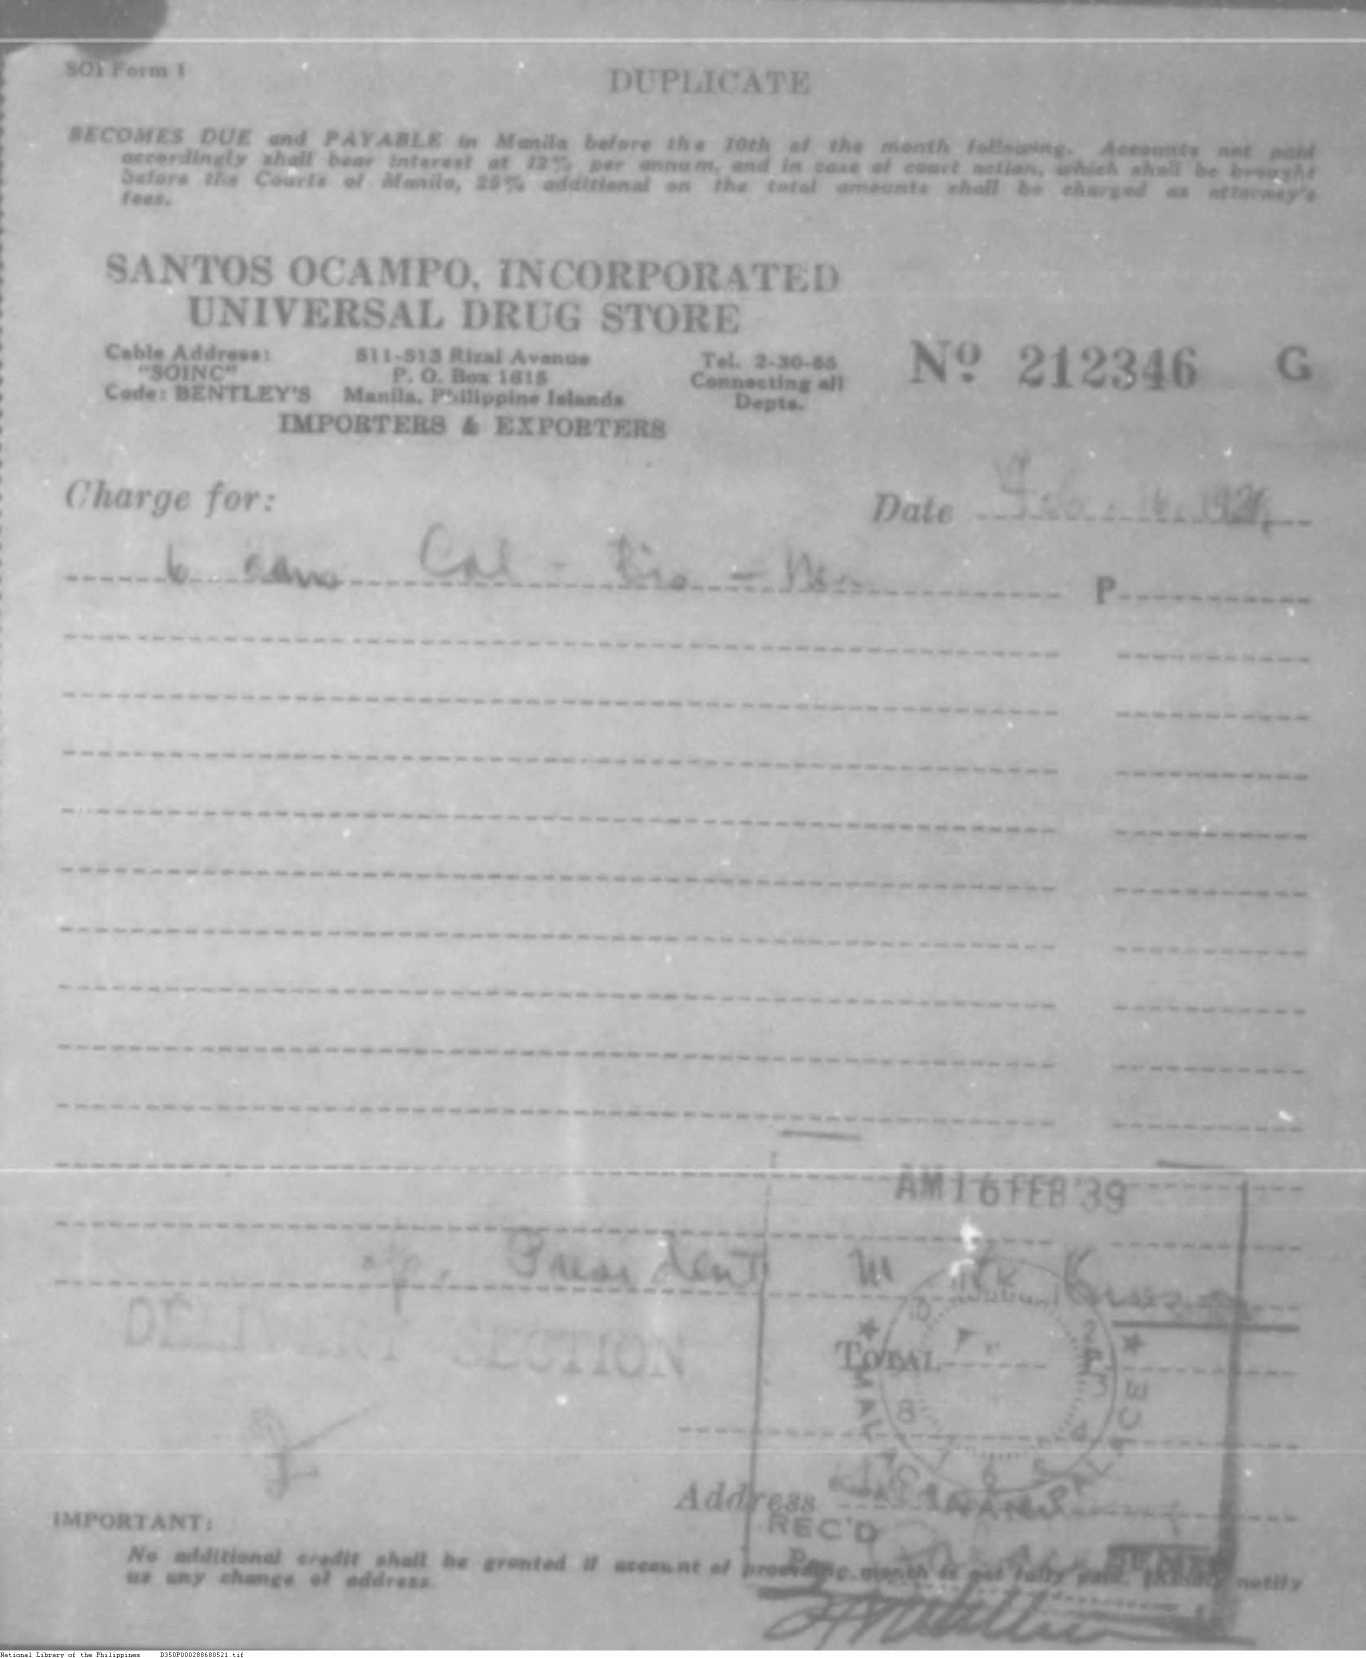 SOI Form 1
DUPLICATE
BECOMES DUE and PAYABLE in Manila before the 10th of the month following. Accounts not paid
accordingly shall bear interest at 12% per annum, and in case of court action, which shall be brought
before the Courts of Manila, 25% additional on the total amounts shall be charged as attorney's
fees.
SANTOS OCAMPO, INCORPORATED
UNIVERSAL DRUG STORE
Cable Address:
"SOINC"
Code: BENTLEY'S
511-513 Rizal Avenue
P. O. Box 1615
Manila, Philippine Islands
Tel. 2-30-65
Connecting all
Depts.
IMPORTERS & EXPORTERS
Nº 212346 G
Charge for:
Date Feb. 16, 1939
6 cans Cal - Bis - 
P
AM 16 FEB '39
President M
DELIVERY SECTION
TOTAL P
MALACAÑAN PALACE
Address
REC'D
IMPORTANT:
No additional credit shall be granted if account of preceding month is not fully paid. Please notify
us any change of address.
National Library of the Philippines D350P000288680521.tif